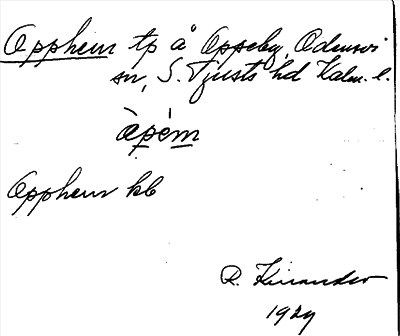 Opphem tp å Oppeby, Odensvi
sn, S. Tjusts hd Kalm. l.
àpém
Opphem kb
R. Kinander
1929